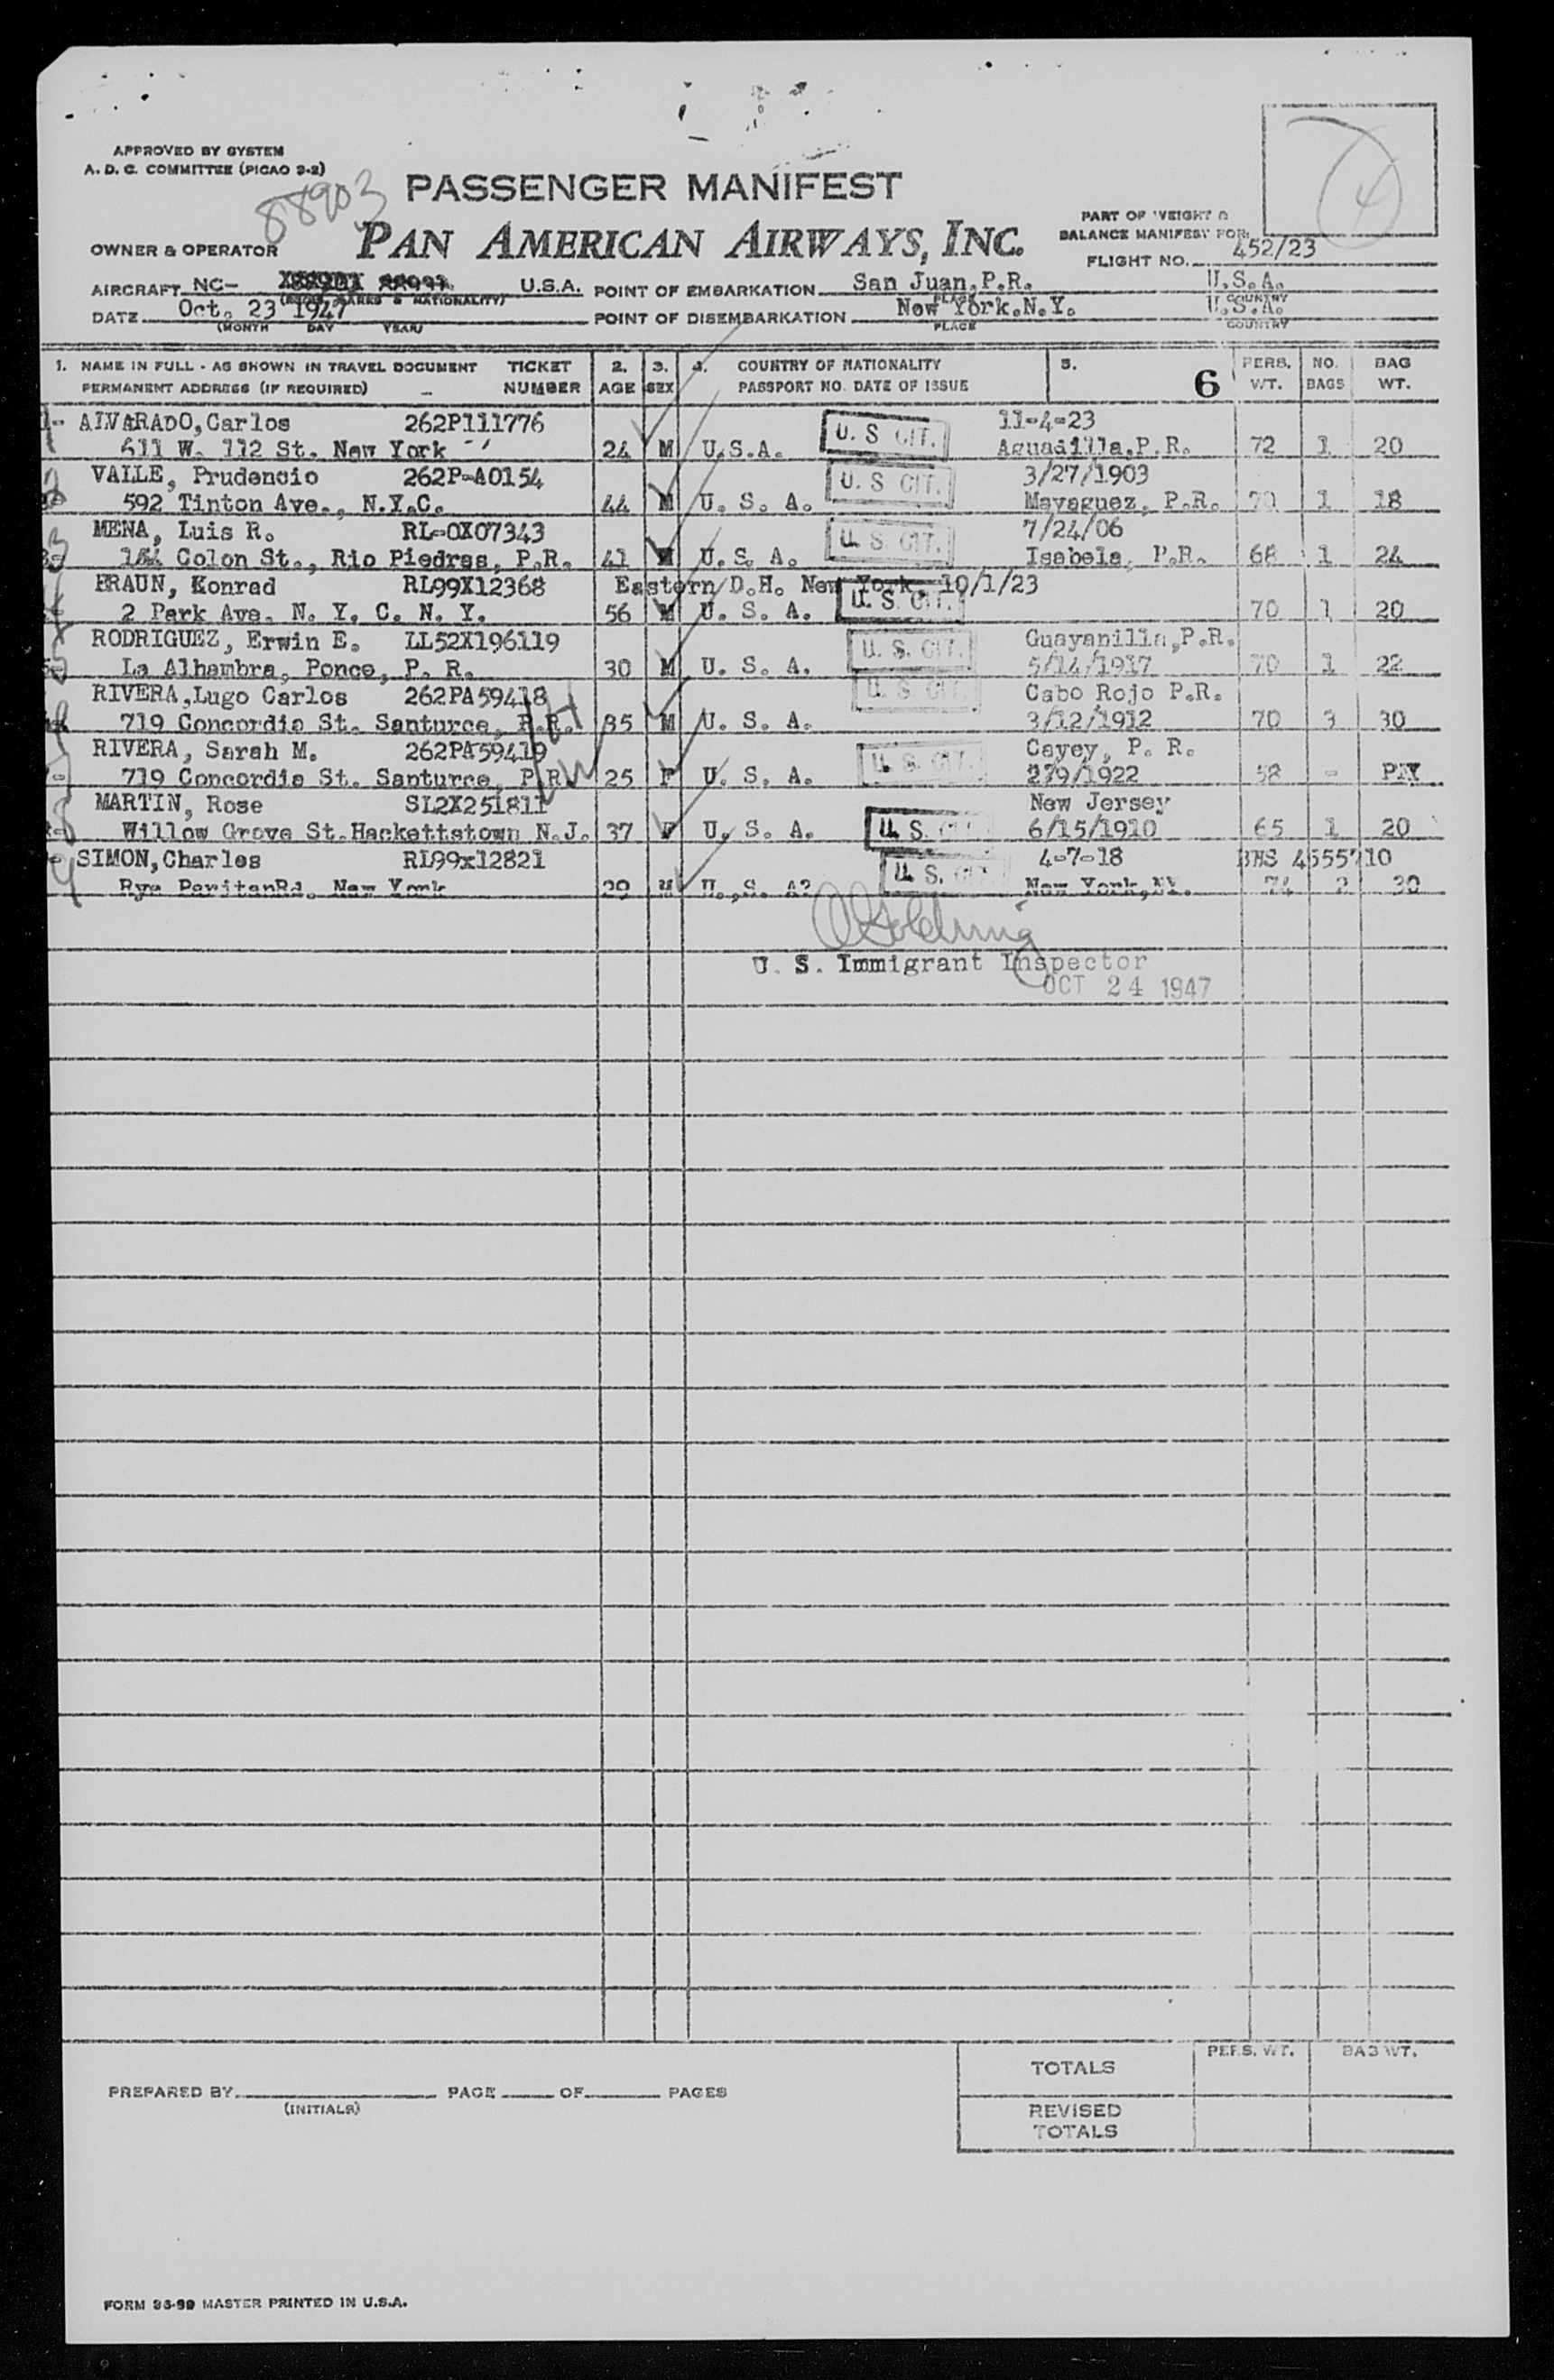 APPROVED BY SYSTEM
A. D. C. COMMITTEE (PICAO 9-2)
88903
PASSENGER MANIFEST
4
OWNER & OPERATOR
PAN AMERICAN AIRWAYS, INC.
PART OF WEIGHT &
BALANCE MANIFEST FOR
FLIGHT NO. 452/23
AIRCRAFT NC- U.S.A. POINT OF EMBARKATION San Juan, P.R. U.S.A.
(REGIS. MARKS & NATIONALITY) PLACE COUNTRY
DATE Oct. 23 1947 POINT OF DISEMBARKATION New York.N.Y. U.S.A.
(MONTH DAY YEAR) PLACE COUNTRY
1. NAME IN FULL - AS SHOWN IN TRAVEL DOCUMENT TICKET 2. 3. 4. COUNTRY OF NATIONALITY 5. PERS. NO. BAG
PERMANENT ADDRESS (IF REQUIRED) NUMBER AGE SEX PASSPORT NO. DATE OF ISSUE 6 WT. BAGS WT.
1- ALVARADO,Carlos 262P111776 U. S CIT. 11-4-23
611 W. 112 St. New York 24 M U.S.A. Aguadilla,P.R. 72 1 20
2 VALLE, Prudencio 262P-A0154 U. S CIT. 3/27/1903
592 Tinton Ave., N.Y.C. 44 M U. S. A. Mayaguez, P.R. 70 1 18
3 MENA, Luis R. RL-0X07343 U. S. CIT. 7/24/06
144 Colon St., Rio Piedras, P.R. 41 M U. S. A. Isabela, P.R. 68 1 24
BRAUN, Konrad RL99X12368 Eastern D.H. New York, 10/1/23
2 Park Ave. N. Y. C. N. Y. 56 M U. S. A. U. S. CIT. 70 1 20
RODRIGUEZ, Erwin E. LL52X196119 U. S. CIT. Guayanilla,P.R.
La Alhambra, Ponce, P. R. 30 M U. S. A. 5/14/1917 70 1 22
RIVERA,Lugo Carlos 262PA59418 U. S. CIT. Cabo Rojo P.R.
719 Concordia St. Santurce, P.R. 35 M U. S. A. 3/12/1912 70 3 30
RIVERA, Sarah M. 262PA59419 U. S. CIT. Cayey, P. R.
719 Concordia St. Santurce, P.R. 25 F U. S. A. 279/1922 58 -
H
W
8 MARTIN, Rose SL2X251811 New Jersey
Willow Grove St.Hackettstown N.J. 37 F U. S. A. U. S. CIT. 6/15/1910 65 1 20
9 SIMON,Charles RL99x12821 U. S. CIT. 4-7-18 BHS 4555710
Rye New York 29 M U.,S. A? New York,NY. 74 2 30
U. S. Immigrant Inspector
OCT 24 1947
PREPARED BY PAGE OF PAGES
(INITIALS)
TOTALS PERS. WT. BAG WT.
REVISED
TOTALS
FORM 36-99 MASTER PRINTED IN U.S.A.